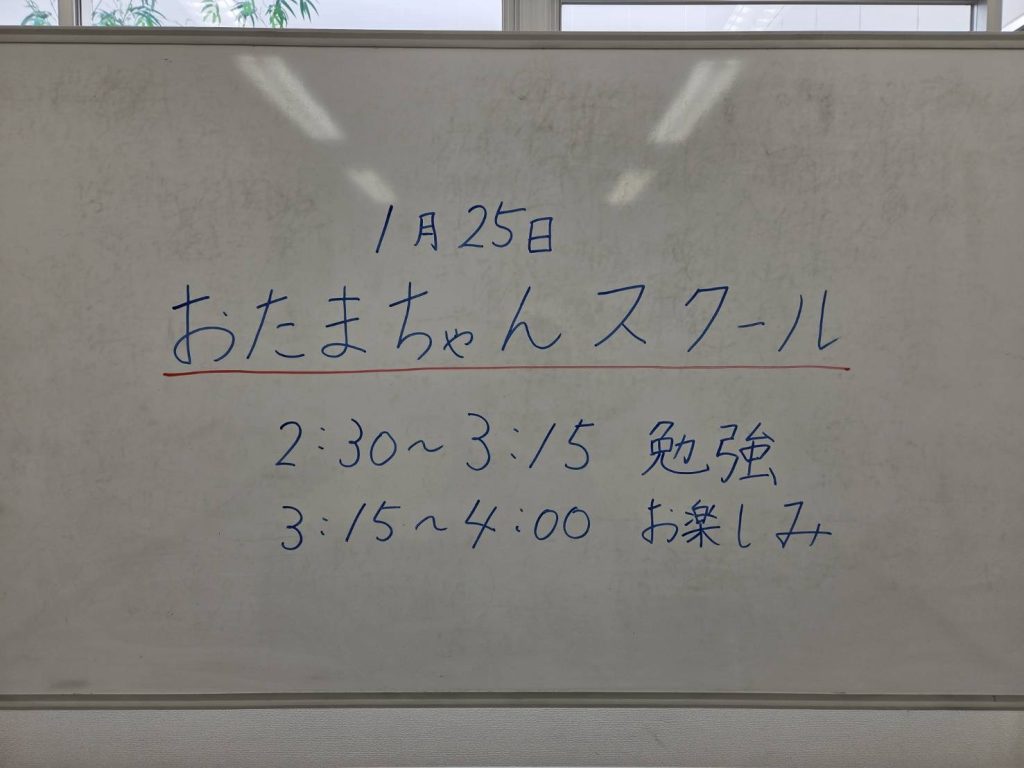 1月25日
おたまちゃんスクール
2:30～3:15 勉強
3:15～4:00 お楽しみ